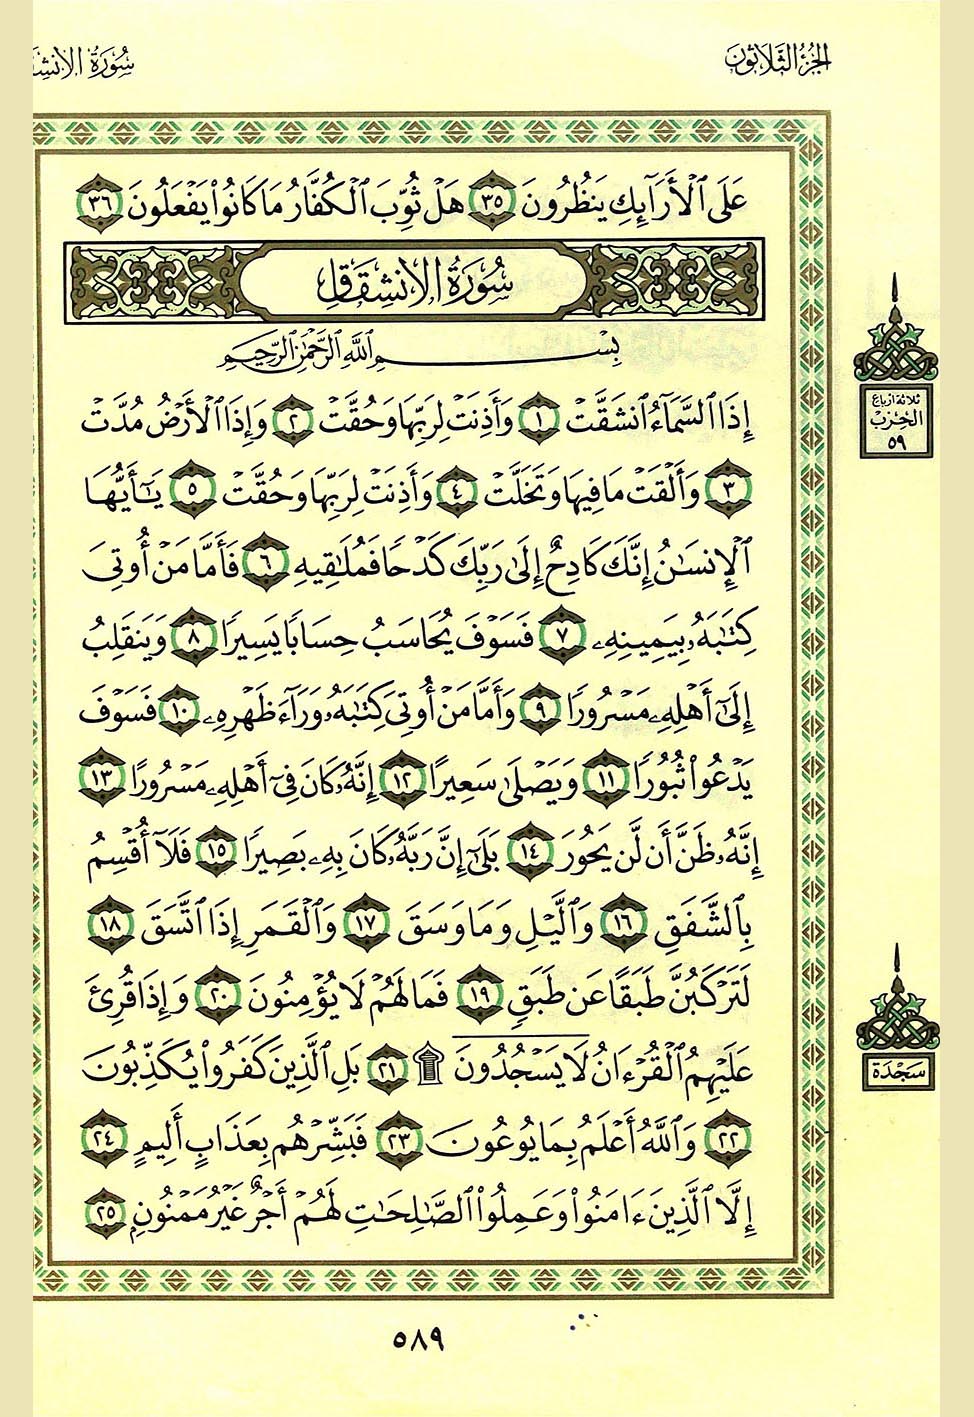 الجزء الثلاثون
سورة الانش
عَلَى ٱلْأَرَآئِكِ يَنظُرُونَ ٣٥ هَلْ ثُوِّبَ ٱلْكُفَّارُ مَا كَانُوا۟ يَفْعَلُونَ ٣٦
سُورَةُ الانشِقَاقِ
بِسْمِ ٱللَّهِ ٱلرَّحْمَٰنِ ٱلرَّحِيمِ
إِذَا ٱلسَّمَآءُ ٱنشَقَّتْ ١ وَأَذِنَتْ لِرَبِّهَا وَحُقَّتْ ٢ وَإِذَا ٱلْأَرْضُ مُدَّتْ
٣ وَأَلْقَتْ مَا فِيهَا وَتَخَلَّتْ ٤ وَأَذِنَتْ لِرَبِّهَا وَحُقَّتْ ٥ يَٰٓأَيُّهَا
ٱلْإِنسَٰنُ إِنَّكَ كَادِحٌ إِلَىٰ رَبِّكَ كَدْحًا فَمُلَٰقِيهِ ٦ فَأَمَّا مَنْ أُوتِىَ
كِتَٰبَهُۥ بِيَمِينِهِۦ ٧ فَسَوْفَ يُحَاسَبُ حِسَابًا يَسِيرًا ٨ وَيَنقَلِبُ
إِلَىٰٓ أَهْلِهِۦ مَسْرُورًا ٩ وَأَمَّا مَنْ أُوتِىَ كِتَٰبَهُۥ وَرَآءَ ظَهْرِهِۦ ١٠ فَسَوْفَ
يَدْعُوا۟ ثُبُورًا ١١ وَيَصْلَىٰ سَعِيرًا ١٢ إِنَّهُۥ كَانَ فِىٓ أَهْلِهِۦ مَسْرُورًا ١٣
إِنَّهُۥ ظَنَّ أَن لَّن يَحُورَ ١٤ بَلَىٰٓ إِنَّ رَبَّهُۥ كَانَ بِهِۦ بَصِيرًا ١٥ فَلَآ أُقْسِمُ
بِٱلشَّفَقِ ١٦ وَٱلَّيْلِ وَمَا وَسَقَ ١٧ وَٱلْقَمَرِ إِذَا ٱتَّسَقَ ١٨
لَتَرْكَبُنَّ طَبَقًا عَن طَبَقٍ ١٩ فَمَا لَهُمْ لَا يُؤْمِنُونَ ٢٠ وَإِذَا قُرِئَ
عَلَيْهِمُ ٱلْقُرْءَانُ لَا يَسْجُدُونَ ۩ ٢١ بَلِ ٱلَّذِينَ كَفَرُوا۟ يُكَذِّبُونَ
٢٢ وَٱللَّهُ أَعْلَمُ بِمَا يُوعُونَ ٢٣ فَبَشِّرْهُم بِعَذَابٍ أَلِيمٍ ٢٤
إِلَّا ٱلَّذِينَ ءَامَنُوا۟ وَعَمِلُوا۟ ٱلصَّٰلِحَٰتِ لَهُمْ أَجْرٌ غَيْرُ مَمْنُونٍۭ ٢٥
ثلاثة أرباع
الحزب
٥٩
سجدة
٥٨٩